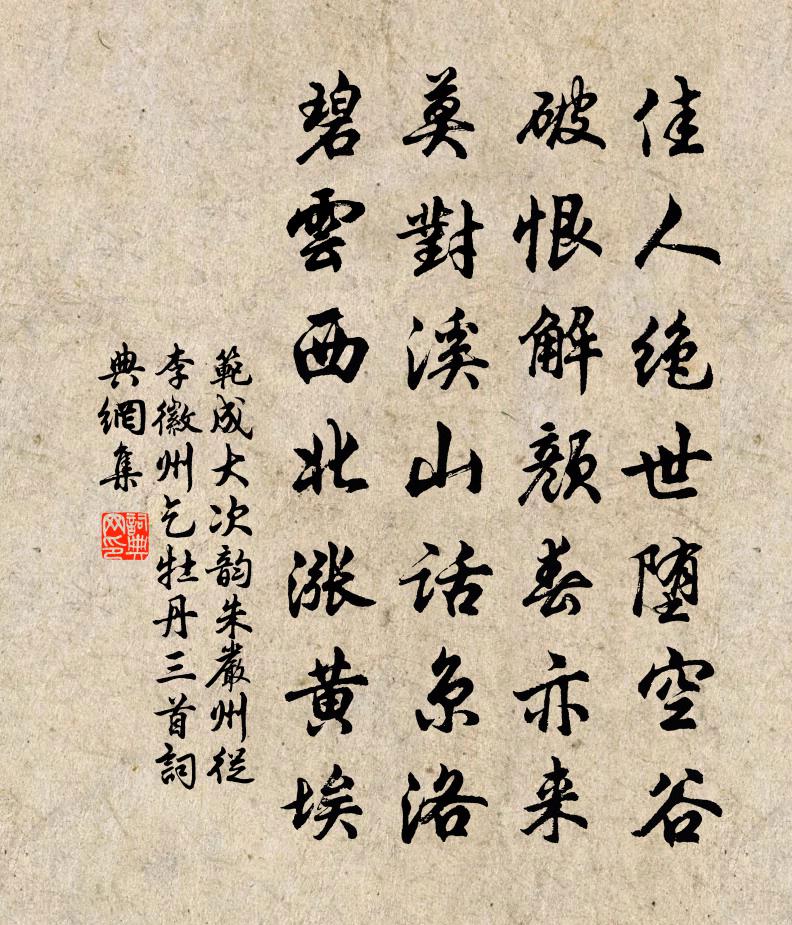 佳人绝世堕空谷
破恨解颜春亦来
莫對溪山話京洛
碧雲西北涨黄埃
範成大次韵朱嚴州從
李徽州乞牡丹三首詞
典網集
詞典
网印